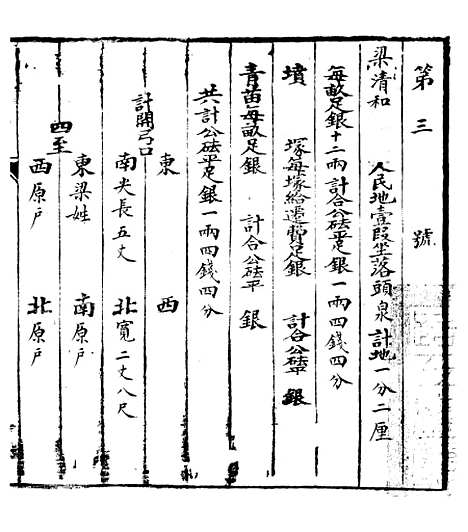 第三號
梁清和 人民地壹段坐落頭泉計地一分二厘
每畝足銀十二兩計合公砝平足銀一兩四錢四分
墳 塚每塚給遷費足銀 計合公砝平 銀
青苗每畝足銀 計合公砝平 銀
共計公砝平足銀一兩四錢四分
計開弓口 東 西
南尖長五丈 北寬二丈八尺
四至 東梁姓 南原戶
西原戶 北原戶